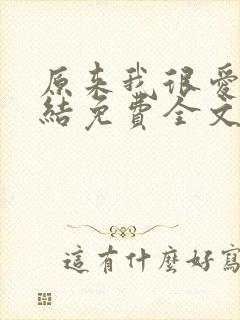 原来我很爱
結免費全文
這有什麼好寫